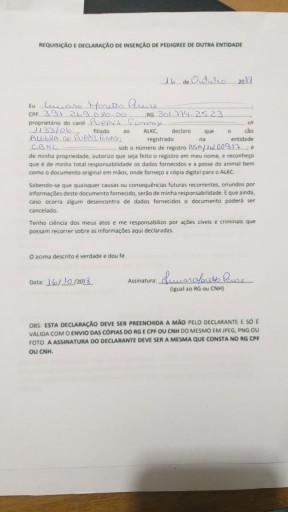 REQUISIÇÃO E DECLARAÇÃO DE INSERÇÃO DE PEDIGREE DE OUTRA ENTIDADE
16 de Outubro 20
Eu
CPF RG 301.774.2523
proprietário do canil nº
1133/06 filiado ao ALKC, declaro que o cão
registrado na entidade
CBKC sob o número de registro e
de minha propriedade, autorizo que seja feito o registro em meu nome, e reconheço
que é de minha total responsabilidade os dados fornecidos e a posse do animal bem
como o documento original em mãos, onde forneço a cópia digital para o ALKC.
Sabendo-se que quaisquer causas ou consequências futuras recorrentes, oriundos por
informações deste documento fornecido, serão de minha responsabilidade. E que ainda,
caso ocorra algum desencontro de dados fornecidos o documento poderá ser
cancelado.
Tenho ciência dos meus atos e me responsabilizo por ações cíveis e criminais que
possam recorrer sobre as informações aqui declaradas.
O acima descrito é verdade e dou fé
Data: 16/10/2013 Assinatura:
(igual ao RG ou CNH)
OBS: ESTA DECLARAÇÃO DEVE SER PREENCHIDA A MÃO PELO DECLARANTE E SÓ É
VÁLIDA COM O ENVIO DAS CÓPIAS DO RG E CPF OU CNH DO MESMO EM JPEG, PNG OU
FOTO. A ASSINATURA DO DECLARANTE DEVE SER A MESMA QUE CONSTA NO RG CPF
OU CNH.